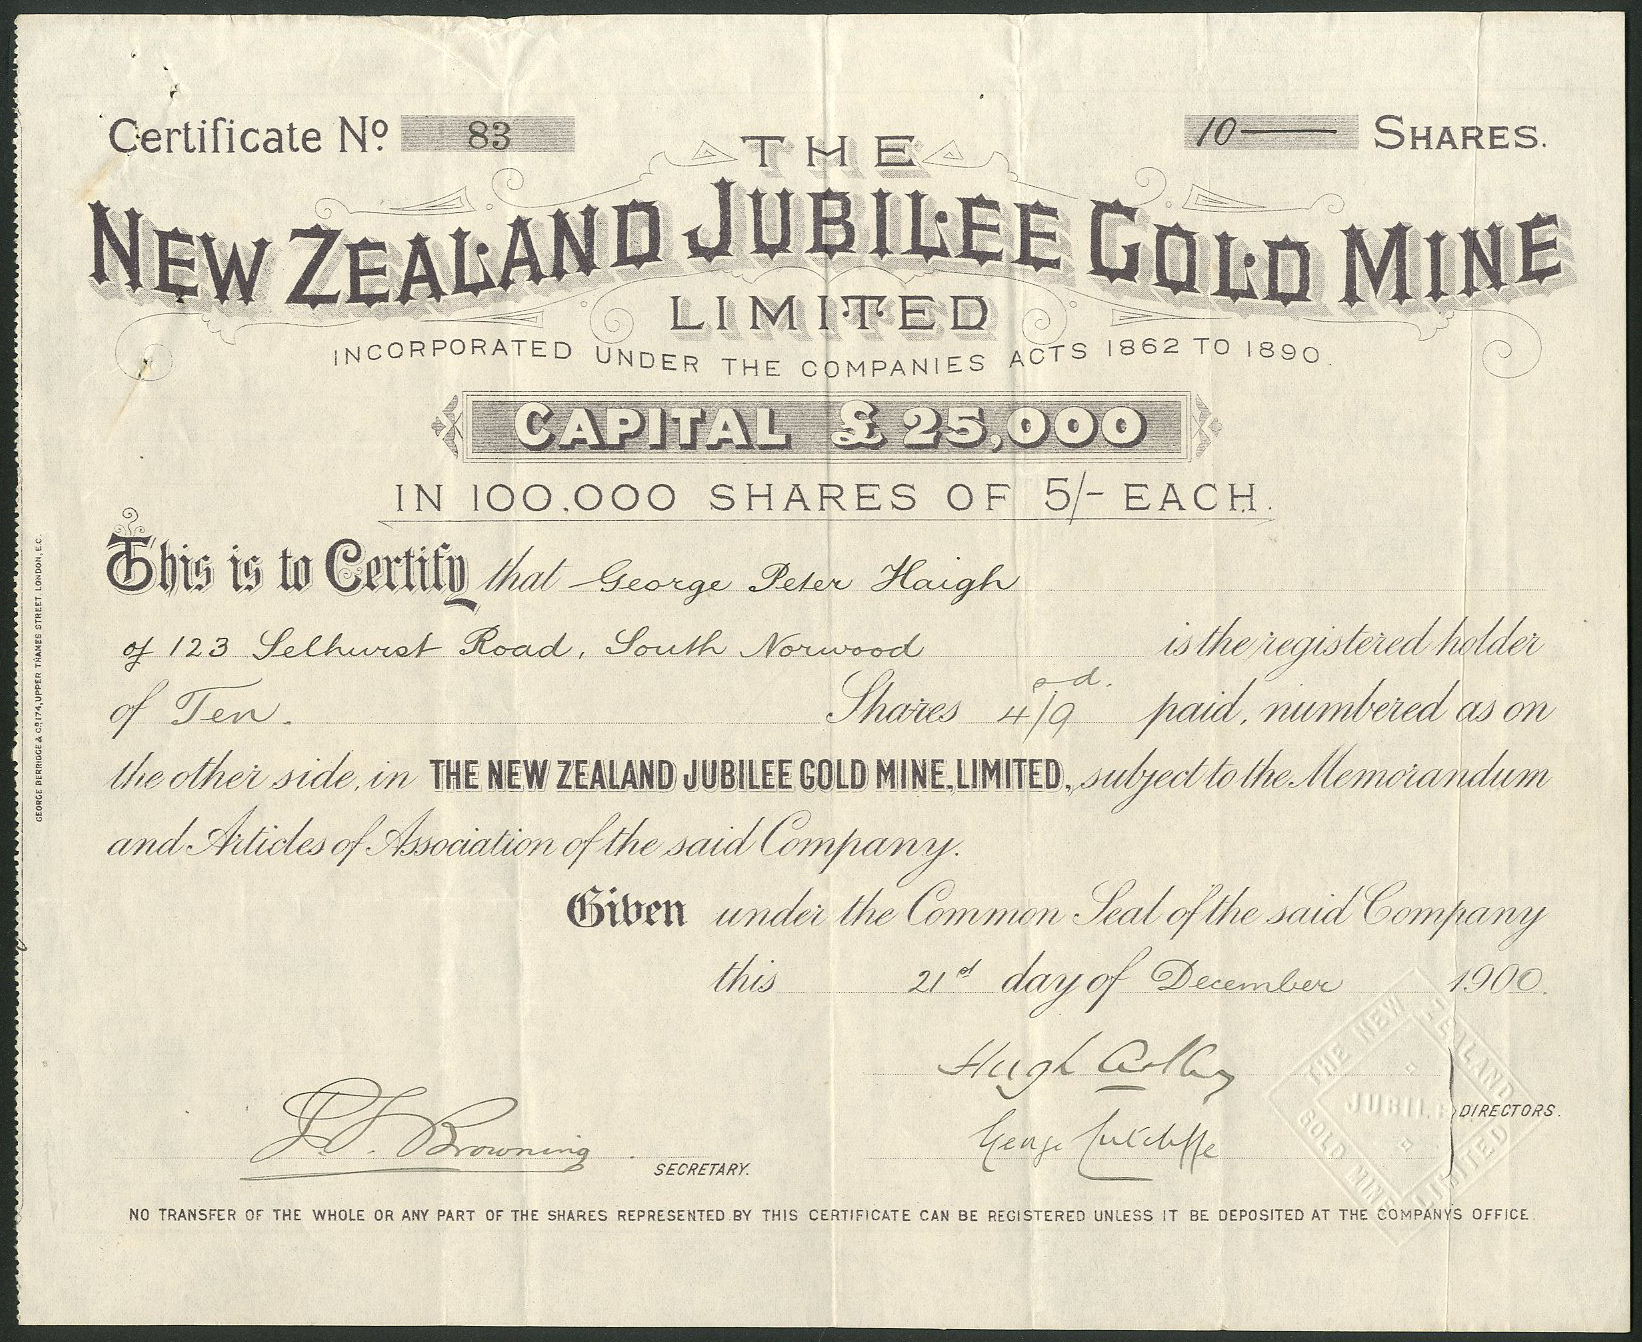 Certificate No 83
10 — SHARES.
THE
NEW ZEALAND JUBILEE GOLD MINE
LIMITED
INCORPORATED UNDER THE COMPANIES ACTS 1862 TO 1890.
CAPITAL £25,000
IN 100,000 SHARES OF 5/- EACH.
This is to Certify that George Peter Haigh
of 123 Selhurst Road, South Norwood is the registered holder
of Ten. Shares 4/9 s d. paid, numbered as on
the other side, in THE NEW ZEALAND JUBILEE GOLD MINE, LIMITED, subject to the Memorandum
and Articles of Association of the said Company.
Given under the Common Seal of the said Company
this 21st day of December 1900.
Hugh
George Sutcliffe
DIRECTORS.
J. Browning
SECRETARY.
THE NEW ZEALAND JUBILEE GOLD MINE LIMITED
NO TRANSFER OF THE WHOLE OR ANY PART OF THE SHARES REPRESENTED BY THIS CERTIFICATE CAN BE REGISTERED UNLESS IT BE DEPOSITED AT THE COMPANYS OFFICE.
GEORGE BERRIDGE & CO. 174, UPPER THAMES STREET. LONDON, E.C.